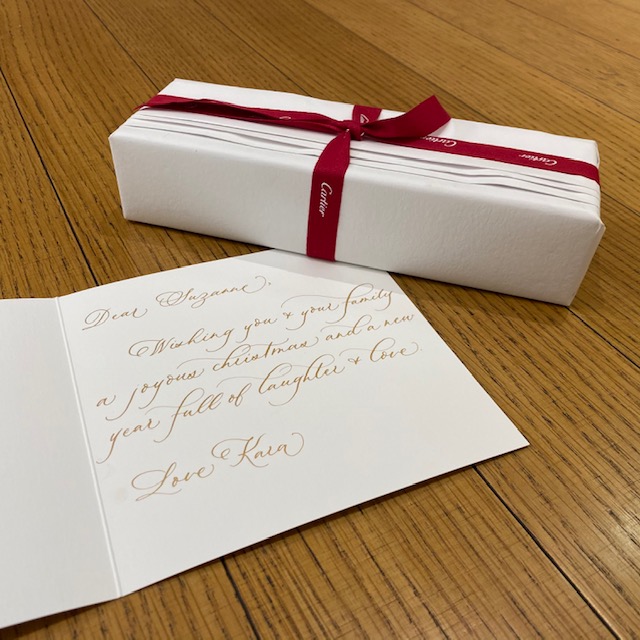 Cartier
Cartier
Dear Suzanne,
Wishing you & your family
a joyous christmas and a new
year full of laughter & love.
Love Kara